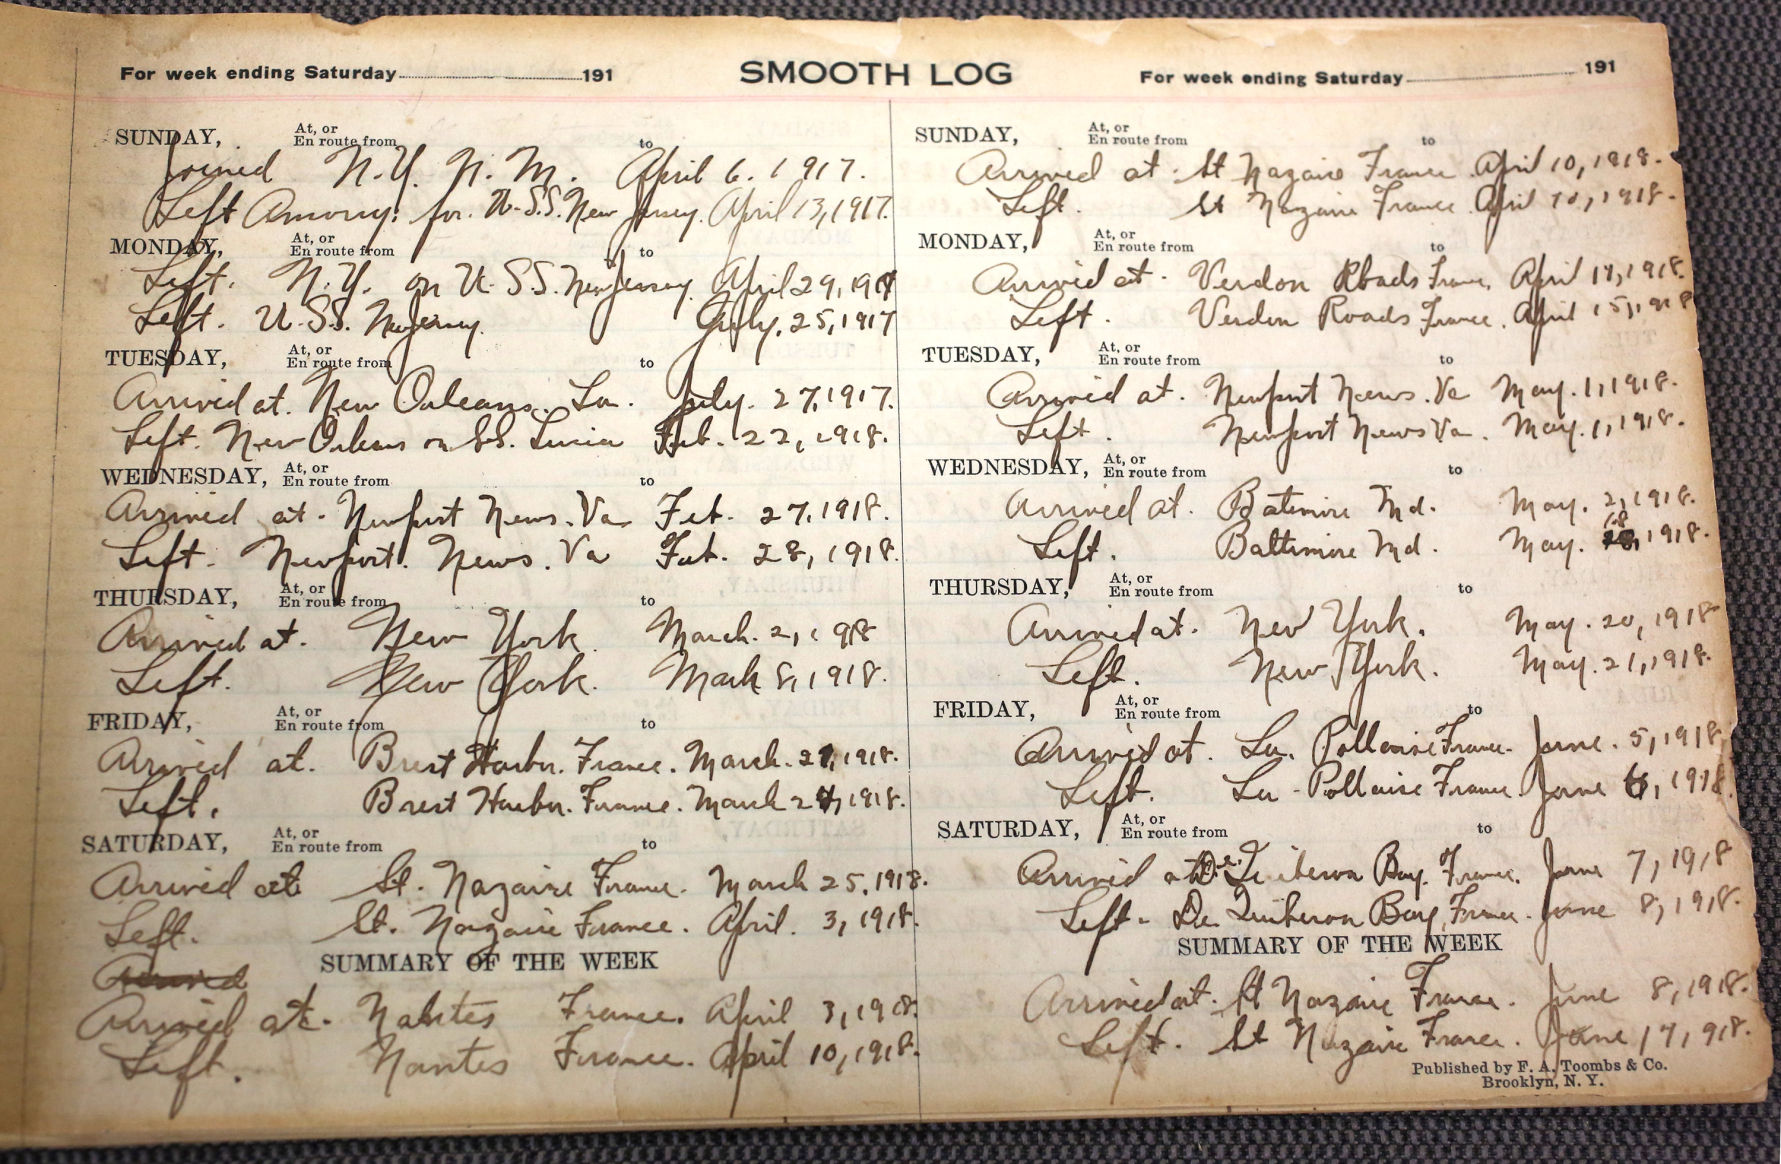 For week ending Saturday 191
SMOOTH LOG
For week ending Saturday 191
SUNDAY, At, or En route from to
Joined N.Y. N. M. April 6. 1917.
Left Armory. for. U.S.S. New Jersey. April 13, 1917.
MONDAY, At, or En route from to
Left. N.Y. on U.S.S. New Jersey. April 29, 1917
Left. U.S.S. New Jersey. July, 25, 1917
TUESDAY, At, or En route from to
Arrived at. New Orleans. La. July. 27, 1917.
Left. New Orleans on S.S. Lucia Feb. 22, 1918.
WEDNESDAY, At, or En route from to
Arrived at. Newport News. Va Feb. 27, 1918.
Left. Newport. News. Va Feb. 28, 1918.
THURSDAY, At, or En route from to
Arrived at. New York March. 2, 1918
Left. New York. March 8, 1918.
FRIDAY, At, or En route from to
Arrived at. Brest Harbor. France. March. 21, 1918.
Left. Brest Harbor. France. March 24, 1918.
SATURDAY, At, or En route from to
Arrived at St. Nazaire France. March 25, 1918.
Left. St. Nazaire France. April. 3, 1918.
SUMMARY OF THE WEEK
Arrived
Arrived at. Nantes France. April 3, 1918.
Left. Nantes France. April 10, 1918.
SUNDAY, At, or En route from to
Arrived at St Nazaire France April 10, 1918.
Left. St Nazaire France April 10, 1918.
MONDAY, At, or En route from to
Arrived at. Verdon Roads France. April 14, 1918.
Left. Verdon Roads France. April 15, 1918
TUESDAY, At, or En route from to
Arrived at. Newport News. Va May. 1, 1918.
Left. Newport News Va. May. 1, 1918.
WEDNESDAY, At, or En route from to
Arrived at. Batimore Md. May. 2, 1918.
Left. Baltimore Md. May. 18, 1918.
THURSDAY, At, or En route from to
Arrived at. New York. May. 20, 1918
Left. New York. May. 21, 1918.
FRIDAY, At, or En route from to
Arrived at. La. Pallaise France. June. 5, 1918
Left. La Pallaise France. June 6, 1918
SATURDAY, At, or En route from to
Arrived at De Quiberon Bay. France. June 7, 1918
Left. De Quiberon Bay, France. June 8, 1918.
SUMMARY OF THE WEEK
Arrived at. St Nazaire France. June 8, 1918.
Left. St Nazaire France. June 17, 918.
Published by F. A. Toombs & Co.
Brooklyn, N. Y.